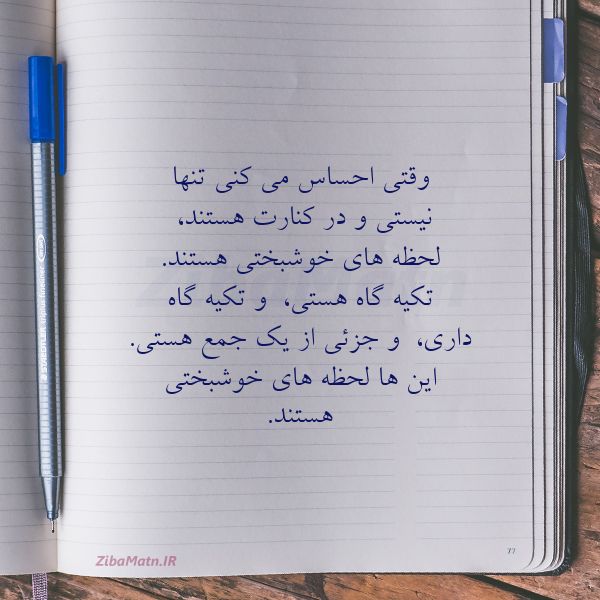 وقتی احساس می کنی تنها
نیستی و در کنارت هستند،
لحظه های خوشبختی هستند.
تکیه گاه هستی، و تکیه گاه
داری، و جزئی از یک جمع هستی.
این ها لحظه های خوشبختی
هستند.
77
ZibaMatn.IR